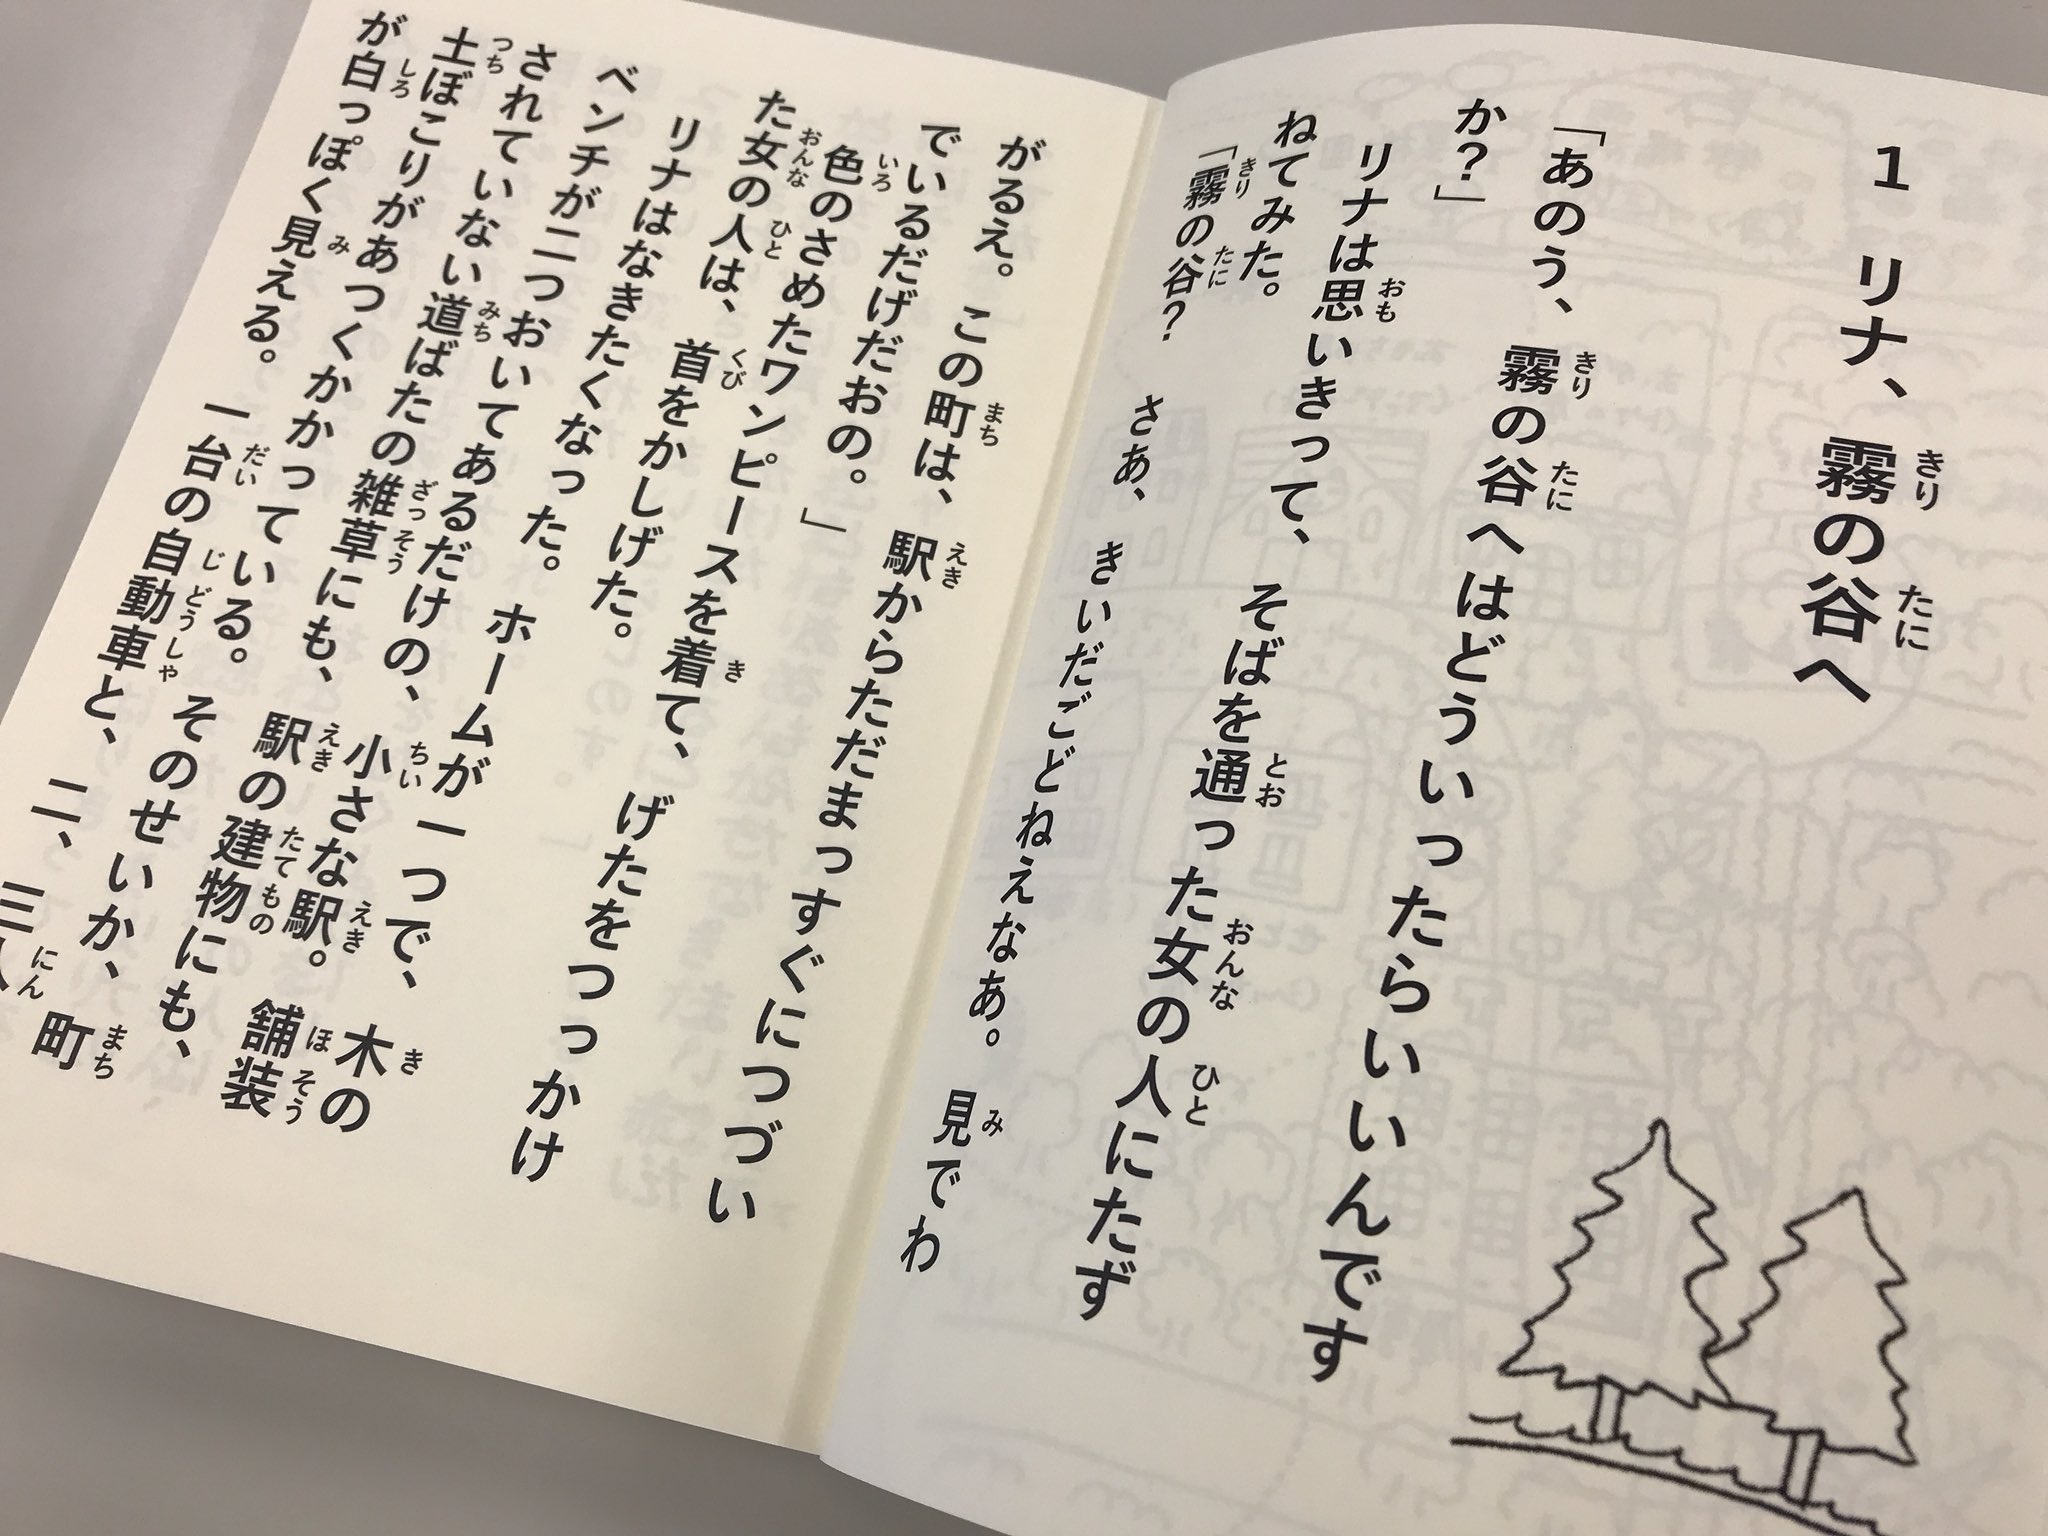 1 リナ、霧の谷へ
「あのう、霧の谷へはどういったらいいんです
か?」
リナは思いきって、そばを通った女の人にたず
ねてみた。
「霧の谷? さあ、きいだごどねえなあ。見でわ
がるえ。この町は、駅からただまっすぐにつづい
でいるだげだおの。」
色のさめたワンピースを着て、げたをつっかけ
た女の人は、首をかしげた。
リナはなきたくなった。ホームが一つで、木の
ベンチが二つおいてあるだけの、小さな駅。舗装
されていない道ばたの雑草にも、駅の建物にも、
土ぼこりがあつくかかっている。そのせいか、町
が白っぽく見える。一台の自動車と、二、三人